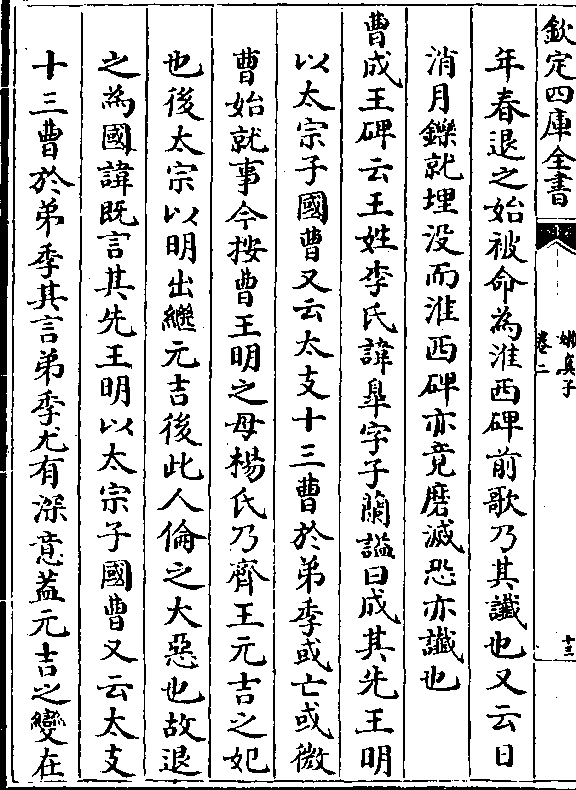 欽定四庫全書
嬾真子
卷二
十三
年春退之始被命為淮西碑前歌乃其讖也又云日
消月鑠就埋没而淮西碑亦竟磨滅恐亦讖也
曹成王碑云王姓李氏諱臯字子蘭謚曰成其先王明
以太宗子國曹又云太支十三曹於弟季或亡或微
曹始就事今按曹王明之母楊氏乃齊王元吉之妃
也後太宗以明出繼元吉後此人倫之大惡也故退
之為國諱既言其先王明以太宗子國曹又云太支
十三曹於弟季其言弟季尤有深意葢元吉之變在